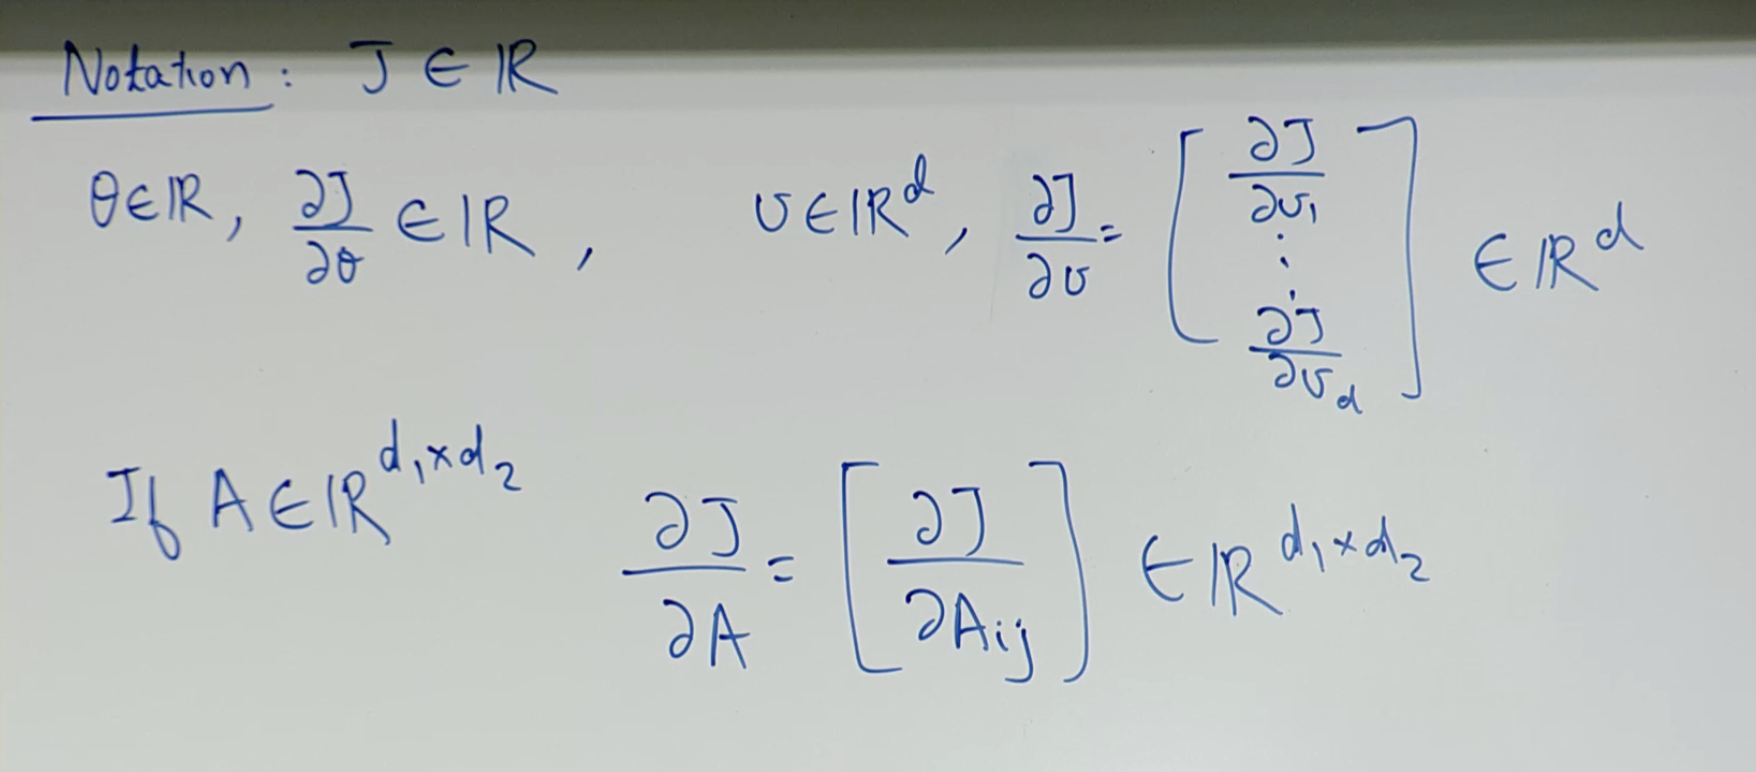 Notation: J ∈ ℝ
θ∈ℝ, ∂J/∂θ ∈ ℝ, v∈ℝ^d, ∂J/∂v = [∂J/∂v₁ ⋮ ∂J/∂v_d] ∈ ℝ^d
If A∈ℝ^{d₁×d₂} ∂J/∂A = [∂J/∂A_{ij}] ∈ ℝ^{d₁×d₂}